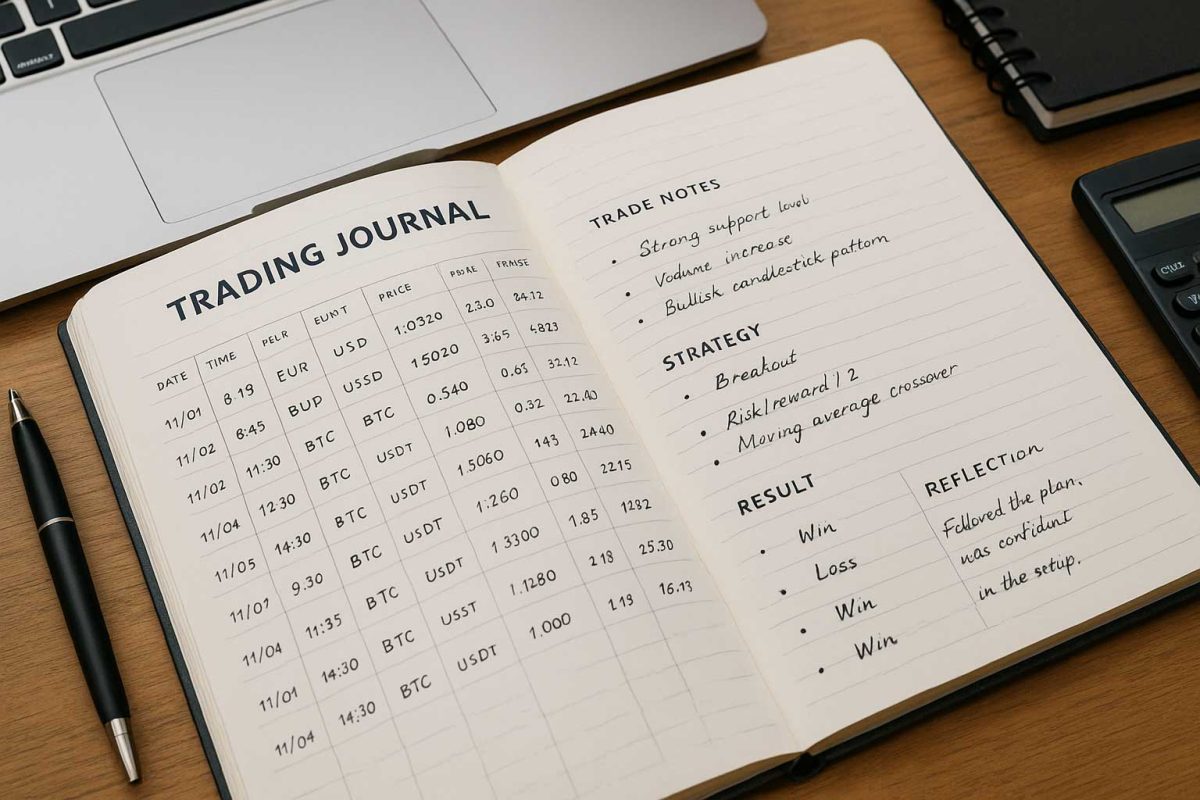 TRADING JOURNAL
DATE TIME PELR EUMT PRICE PBJAE FRAISE
11/01 8:19 EUR USD 1:0320 23.0 84.12
11/02 8:45 BUP USSD 15020 3:65 4823
11/02 11:30 BTC BTC 0.540 0.65 32.12
11/04 12:30 BTC USDT 1.080 0.32 22.40
11/05 14:30 BTC USDT 1.5060 143 2440
11/07 9.30 BTC USDT 1:260 0 80 2215
11/04 11:35 BTC USDT 1 3300 1.85 1282
11/01 14:30 BTC USST 1.1280 2 18 25.30
11/04 14:30 BTC USDT 1.000 1.19 16.13
TRADE NOTES
• Strong support level
• Vodume increase
• Bullisk candlestick pattom
STRATEGY
• Breakout
• Risk/reward 1 2
• Moving average crossover
RESULT
• Win
• Loss
• Win
• Win
REFLECTION
Followed the plan.
was confident
in the setup.